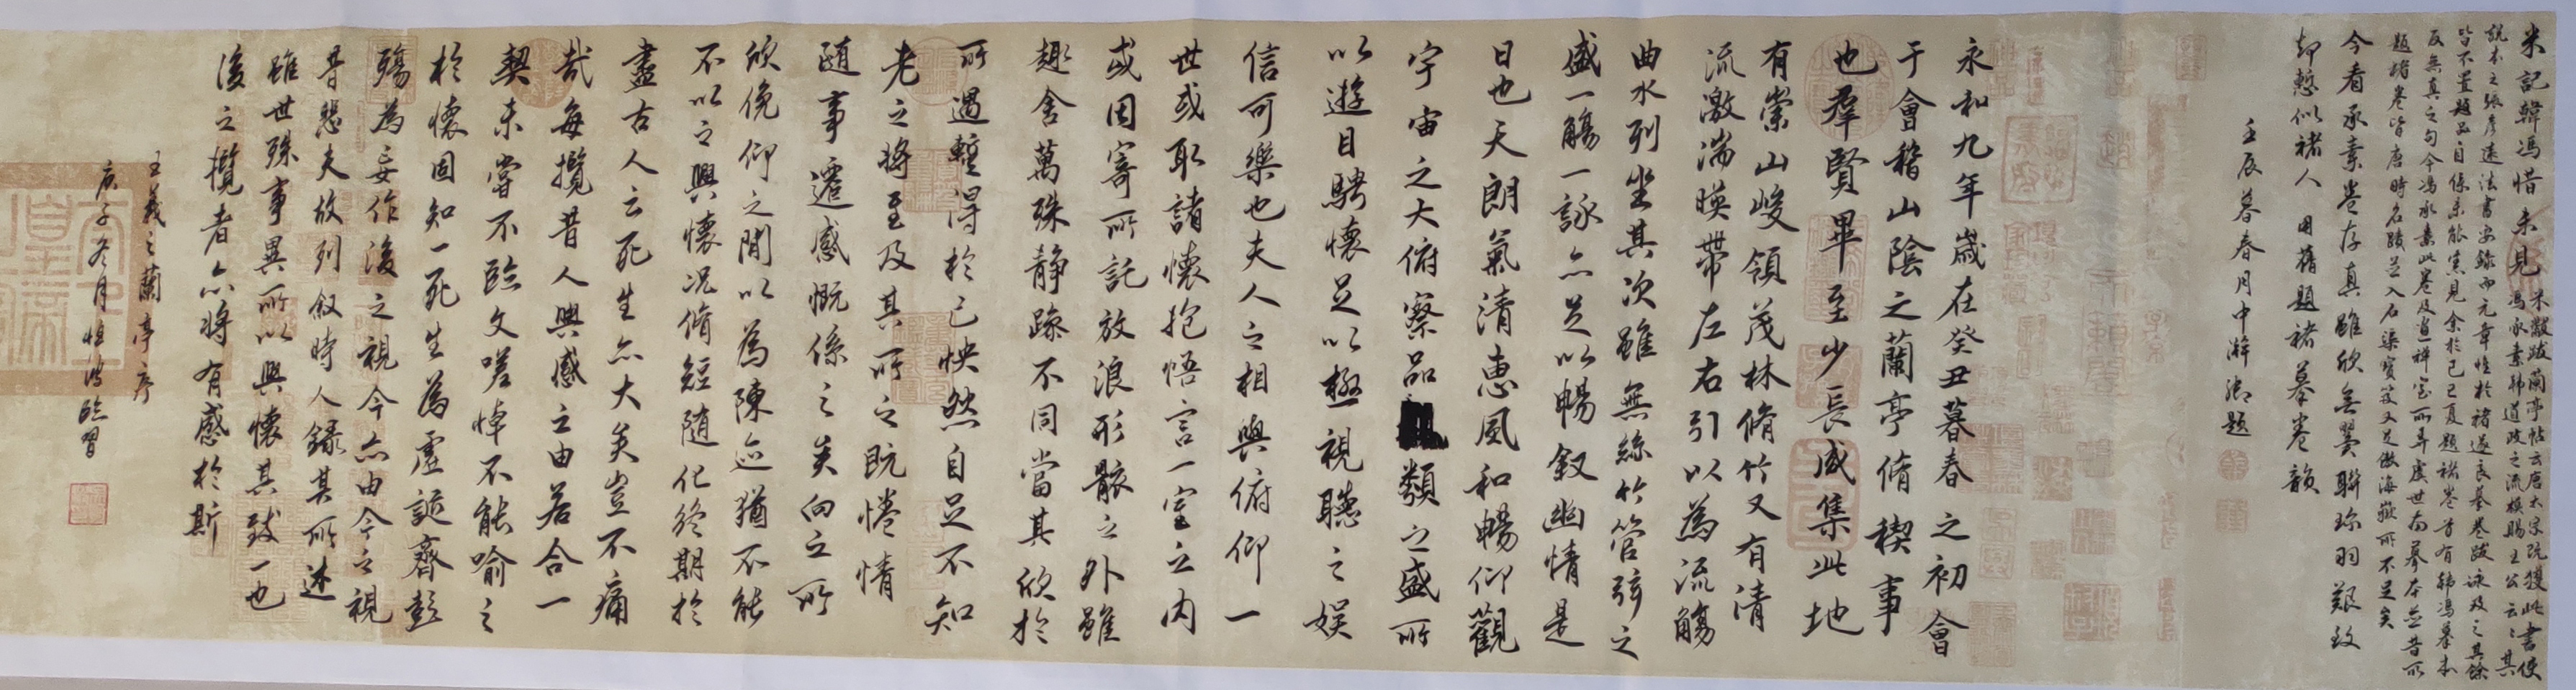 米記韓馮惜未見
米黻跋蘭亭帖云唐太宗既獲此書使
馮承素韓道政之流模賜王公云云其
說本之張彦遠法書要録而元章惟於褚遂良摹卷跋咏及之其餘
皆不置題品自係未能審見余於己巳夏題褚卷昔有韓馮摹本
反無真之句今馮承素此卷及 所弆虞世南摹本並昔所
題褚卷皆唐時名蹟並入石渠寶笈又足傲海嶽所不足矣
今看承素卷存真雖欣無翼聯珎羽艱致
却慙似褚人 用舊題褚摹卷韻
壬辰暮春月中澣御題
永和九年歲在癸丑暮春之初會
于會稽山陰之蘭亭脩稧事
也羣賢畢至少長咸集此地
有崇山峻領茂林脩竹又有清
流激湍暎帶左右引以為流觴
曲水列坐其次雖無絲竹管弦之
盛一觴一詠亦足以暢敘幽情是
日也天朗氣清惠風和暢仰觀
宇宙之大俯察品類之盛所
以遊目騁懷足以極視聽之娛
信可樂也夫人之相與俯仰一
世或取諸懷抱悟言一室之內
或因寄所託放浪形骸之外雖
趣舍萬殊静躁不同當其欣於
所遇蹔得於己怏然自足不知
老之將至及其所之既惓情
隨事遷感慨係之矣向之所
欣俛仰之間以為陳迹猶不能
不以之興懷況脩短隨化終期於
盡古人云死生亦大矣豈不痛
哉每攬昔人興感之由若合一
契未嘗不臨文嗟悼不能喻之
於懷固知一死生為虛誕齊彭
殤為妄作後之視今亦由今之視
昔悲夫故列敘時人錄其所述
雖世殊事異所以興懷其致一也
後之攬者亦將有感於斯
王羲之蘭亭序
庚子冬月 臨習